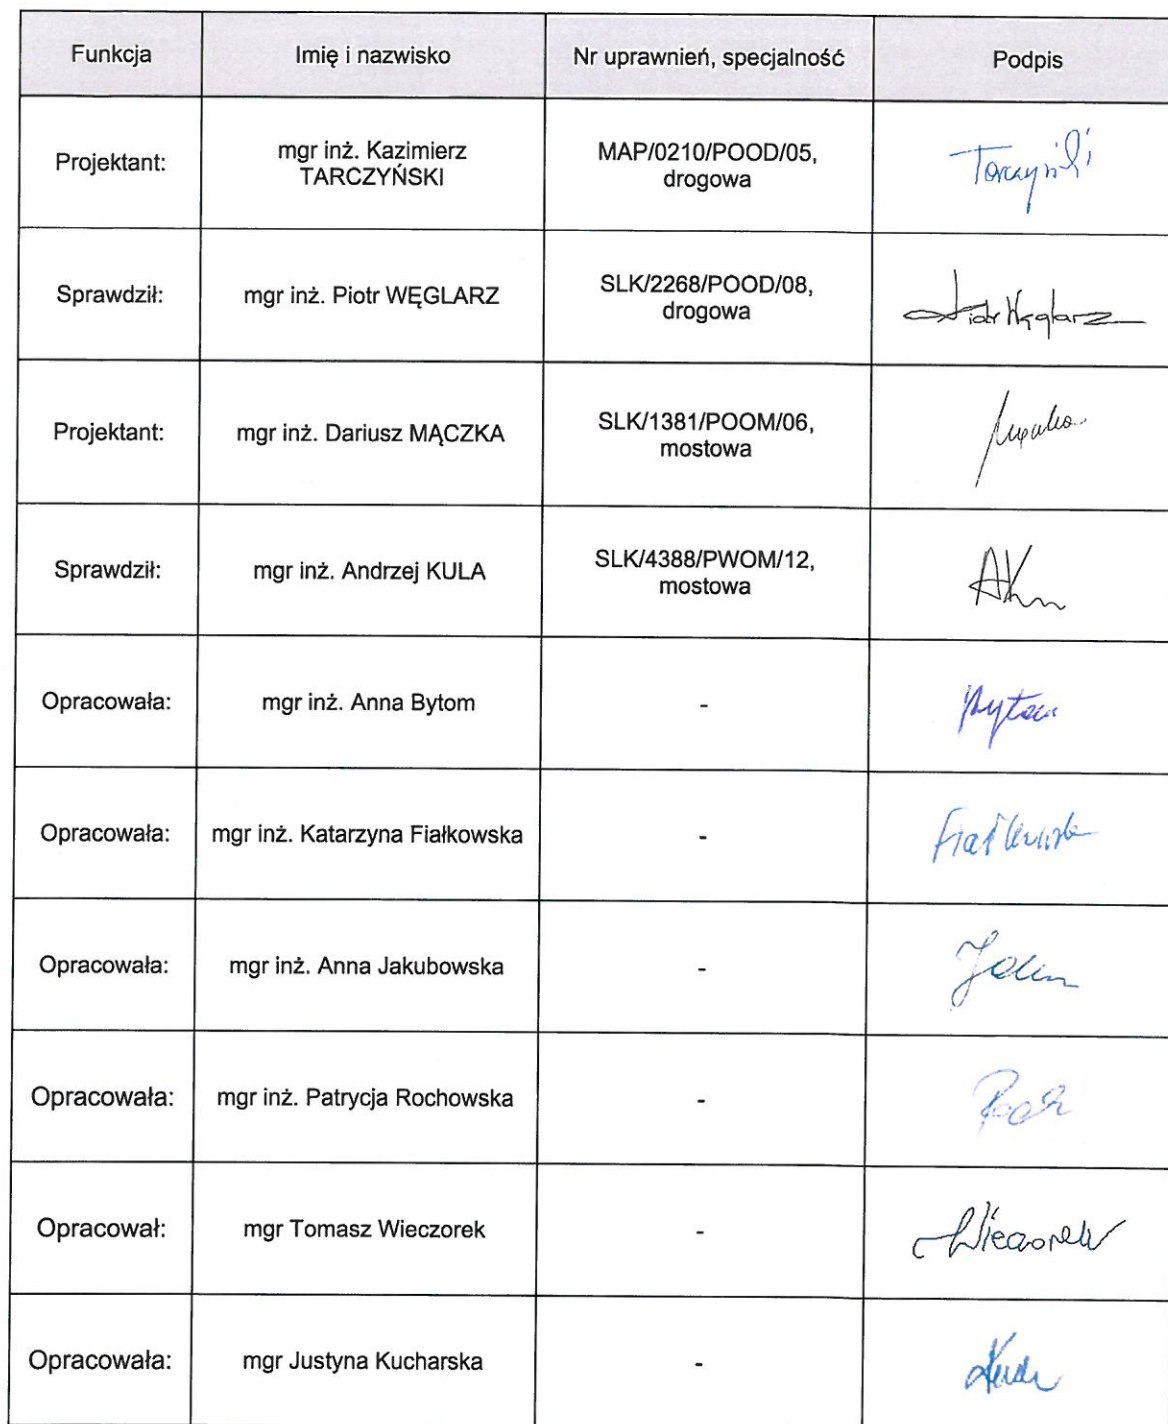 Funkcja Imię i nazwisko Nr uprawnień, specjalność Podpis
Projektant: mgr inż. Kazimierz MAP/0210/POOD/05,
TARCZYŃSKI drogowa
Tarczyński
Sprawdził: mgr inż. Piotr WĘGLARZ SLK/2268/POOD/08,
drogowa
Piotr Węglarz
Projektant: mgr inż. Dariusz MĄCZKA SLK/1381/POOM/06,
mostowa
Sprawdził: mgr inż. Andrzej KULA SLK/4388/PWOM/12,
mostowa
Opracowała: mgr inż. Anna Bytom -
Bytom
Opracowała: mgr inż. Katarzyna Fiałkowska -
Fiałkowska
Opracowała: mgr inż. Anna Jakubowska -
Opracowała: mgr inż. Patrycja Rochowska -
Opracował: mgr Tomasz Wieczorek - Wieczorek
Opracowała: mgr Justyna Kucharska -